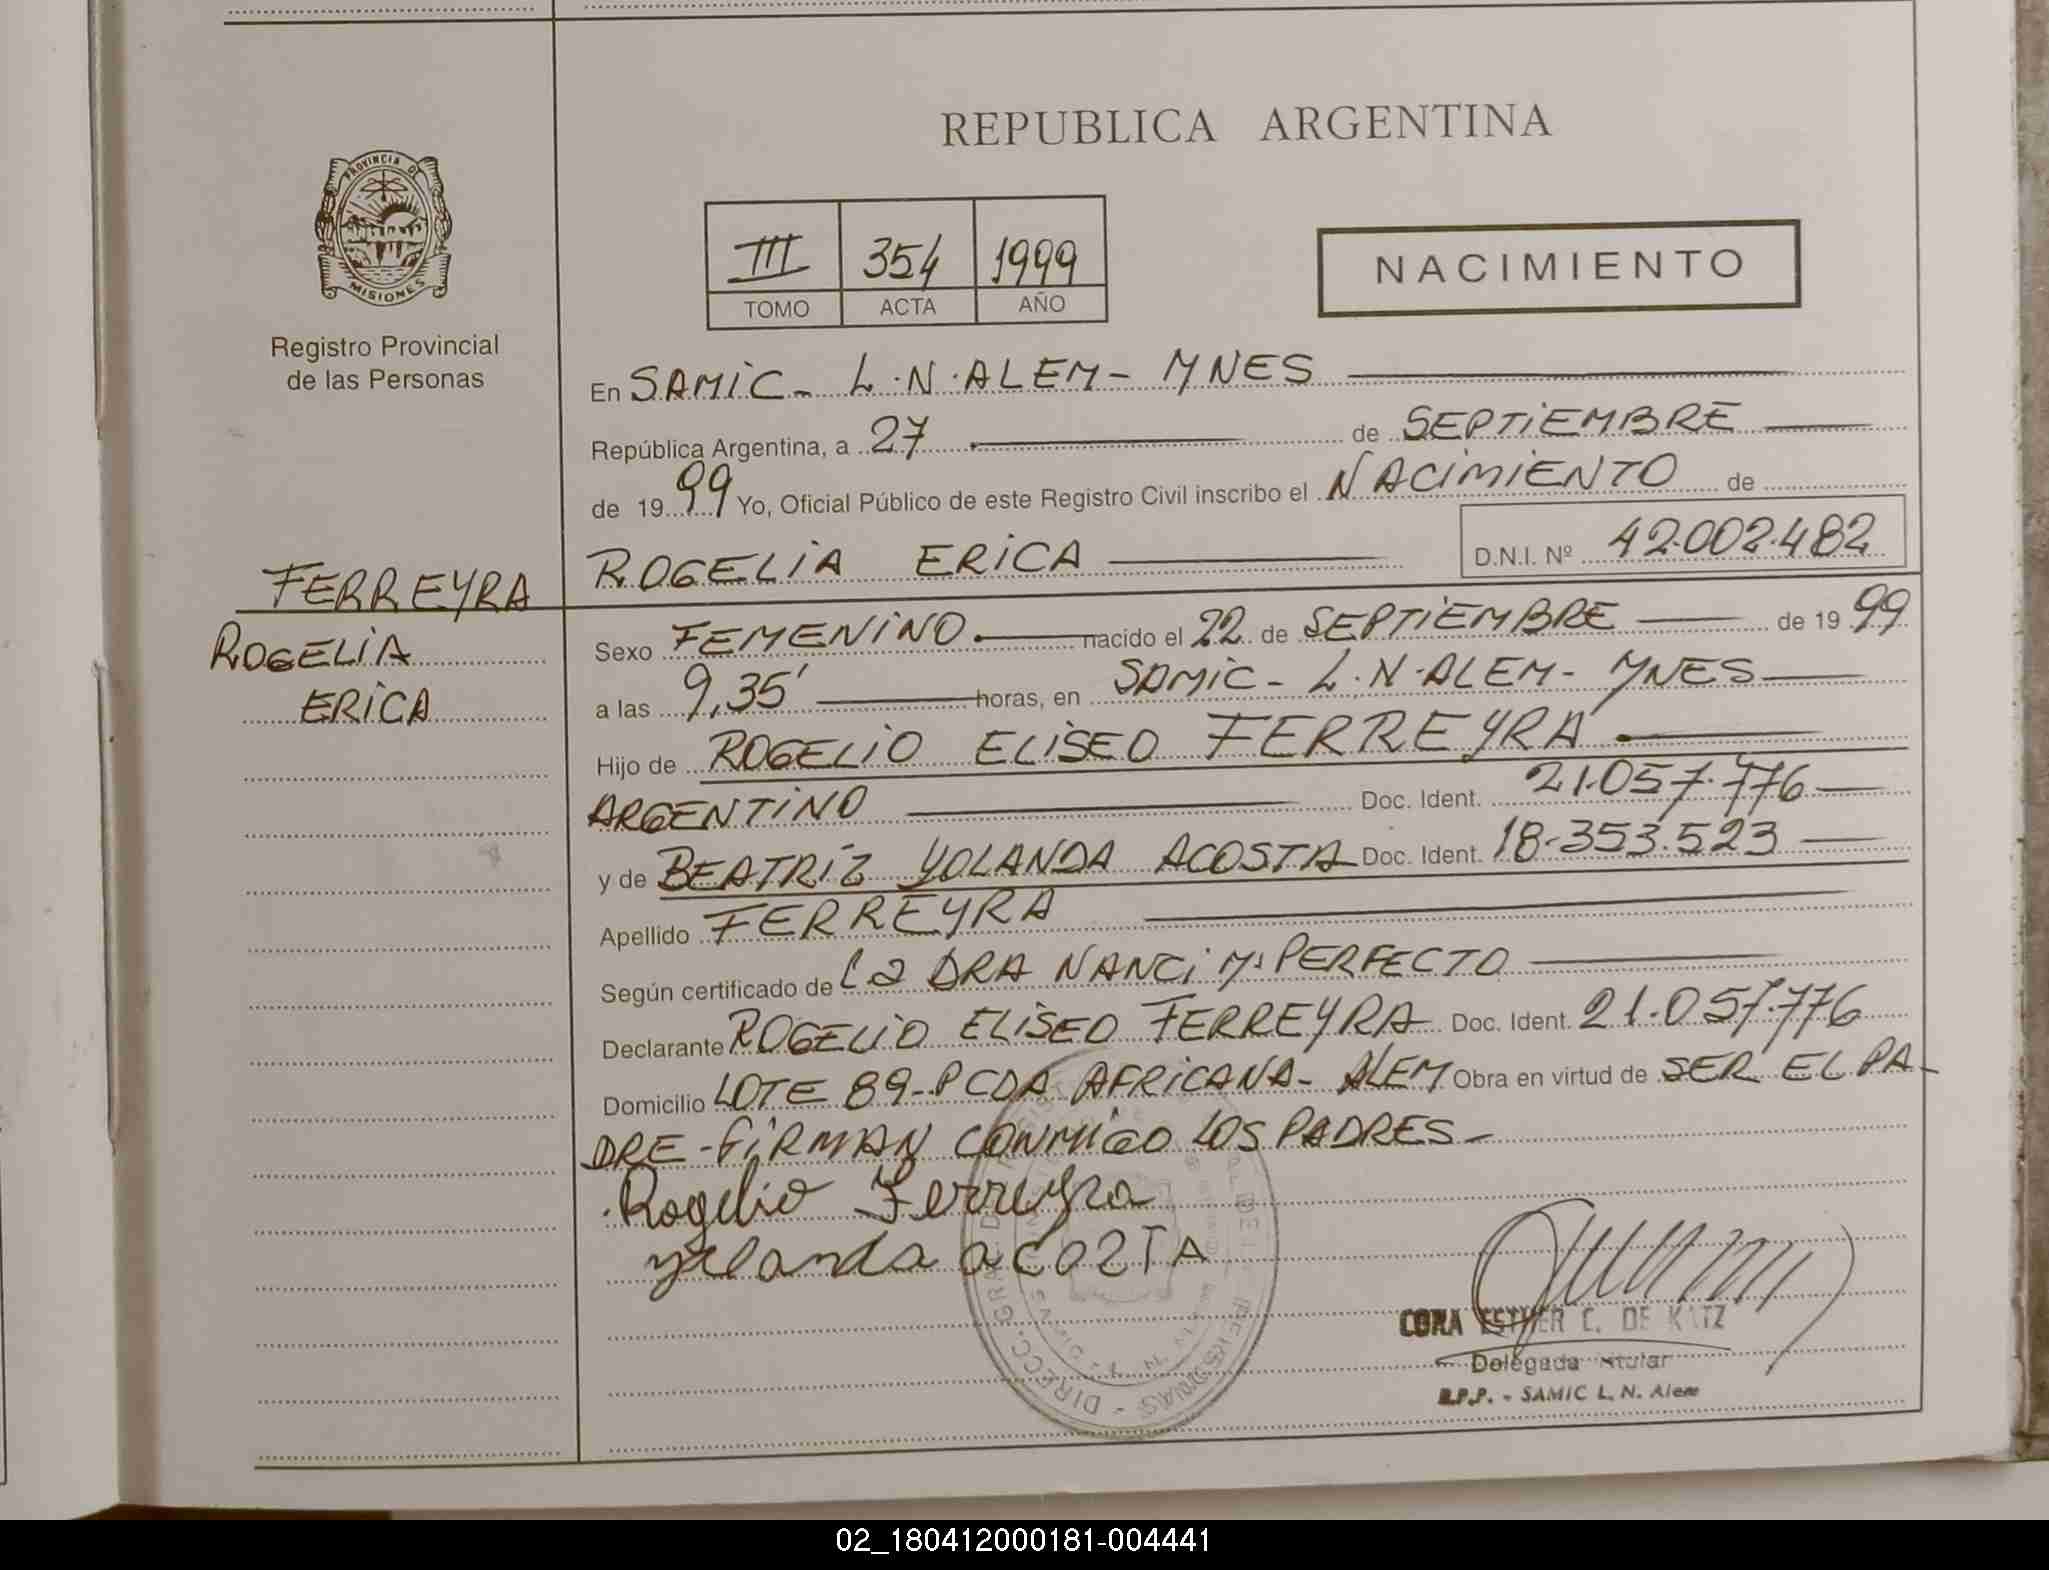 REPUBLICA ARGENTINA
PROVINCIA DE
MISIONES
Registro Provincial
de las Personas
III 354 1999
TOMO ACTA AÑO
NACIMIENTO
En SAMIC - L.N.ALEM - MNES
República Argentina, a 27 de SEPTIEMBRE
de 1999 Yo, Oficial Público de este Registro Civil inscribo el NACIMIENTO de
ROGELIA ERICA D.N.I. Nº 42.002.482
FERREYRA
ROGELIA
ERICA
Sexo FEMENINO. nacido el 22 de SEPTIEMBRE de 1999
a las 9,35' horas, en SAMIC - L.N.ALEM - MNES
Hijo de ROGELIO ELISEO FERREYRA
ARGENTINO Doc. Ident. 21.057.776
y de BEATRIZ YOLANDA ACOSTA Doc. Ident. 18.353.523
Apellido FERREYRA
Según certificado de La DRA NANCI M. PERFECTO
Declarante ROGELIO ELISEO FERREYRA Doc. Ident. 21.057.776
Domicilio LOTE 89-PCDA AFRICANA- ALEM Obra en virtud de SER EL PA-
DRE - FIRMAN CONMIGO LOS PADRES -
Rogelio Ferreyra
yolanda acosTA
CORA ESTHER C. DE KATZ
Delegada Titular
R.P.P. - SAMIC L. N. Alem
02_180412000181-004441